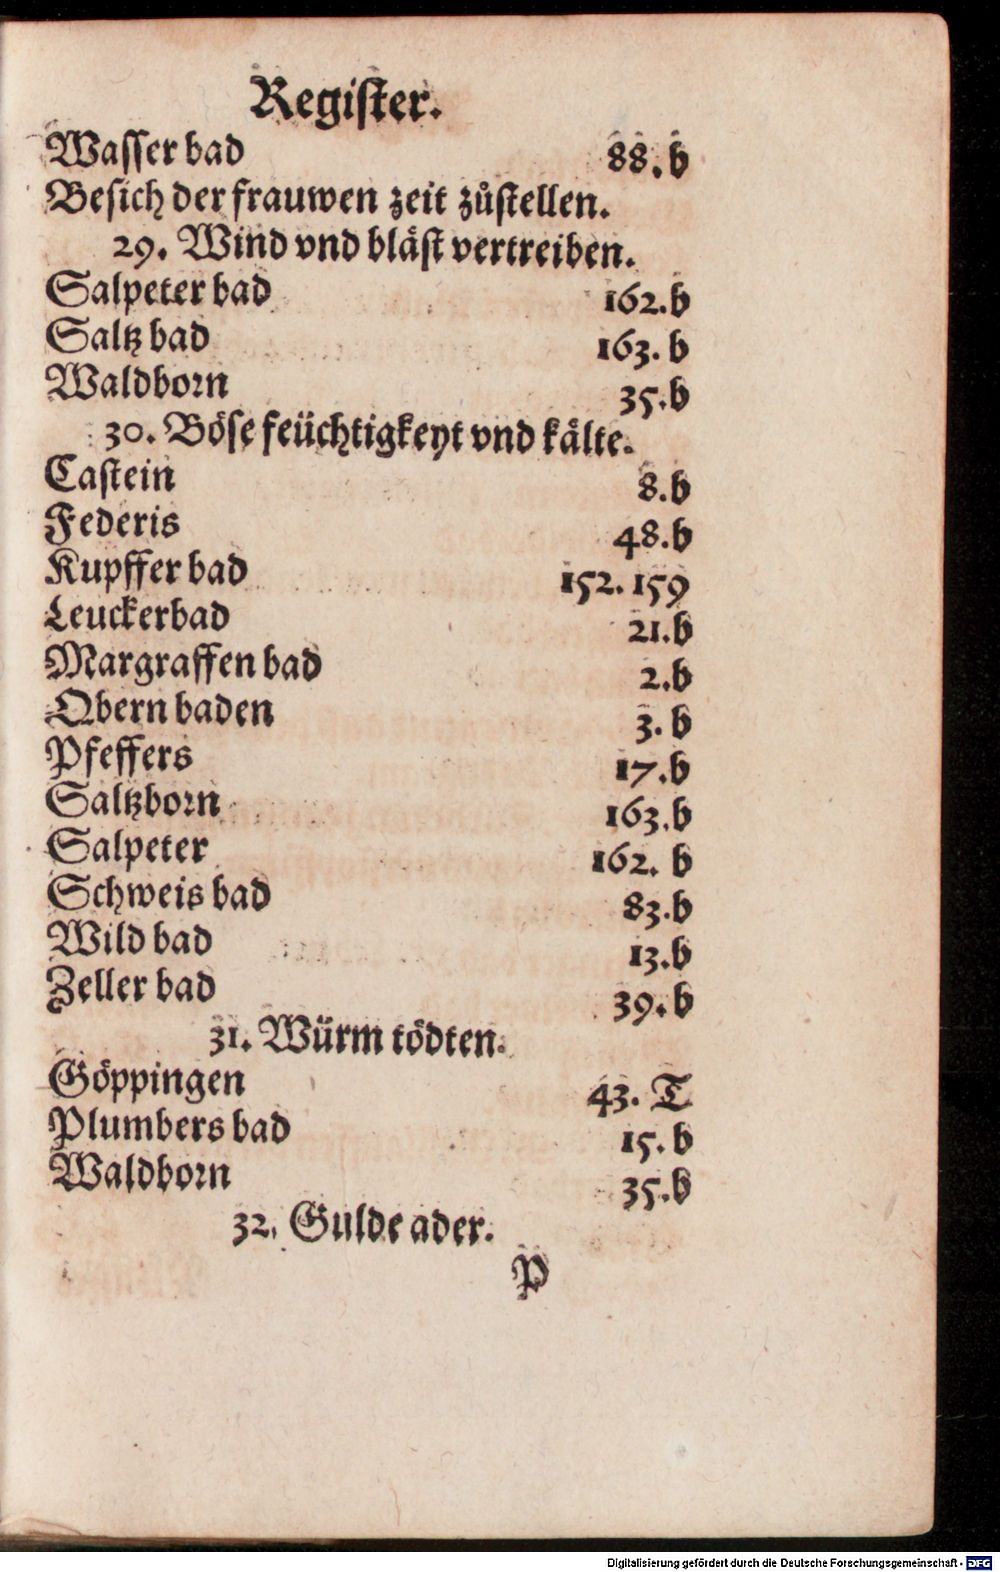 Regiſter.
Waſſer bad 88. b
Beſich der frauwen zeit zůſtellen.
29. Wind vnd bläſt vertreiben.
Salpeter bad 162. b
Saltz bad 163. b
Waldborn 35. b
30. Böſe feüchtigkeyt vnd kälte.
Caſtein 8. b
Federis 48. b
Kupffer bad 152. 159
Leuckerbad 21. b
Margraffen bad 2. b
Obern baden 3. b
Pfeffers 17. b
Saltzborn 163. b
Salpeter 162. b
Schweis bad 83. b
Wild bad 13. b
Zeller bad 39. b
31. Würm tödten.
Göppingen 43. T
Plumbers bad 15. b
Waldborn 35. b
32. Gulde ader.
P
Digitalisierung gefördert durch die Deutsche Forschungsgemeinschaft - DFG